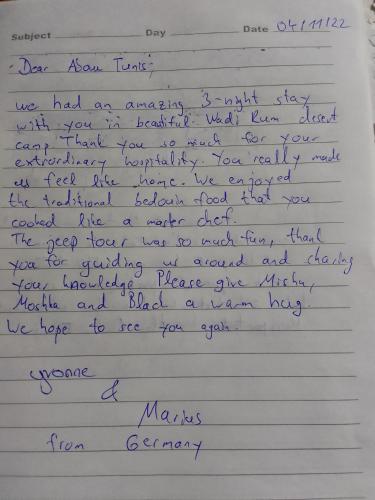 Subject Day Date 04/11/22
Dear Abou Tunis,
we had an amazing 3-night stay
with you in beautiful Wadi Rum desert
camp. Thank you so much for your
extrordinary hospitality. You really made
us feel like home. We enjoyed
the traditional bedouin food that you
cooked like a master chef.
The jeep tour was so much fun, thank
you for guiding us around and sharing
your knowledge. Please give Mishu,
Moshka and Black a warm hug.
We hope to see you again.
yvonne
&
Marius
from Germany